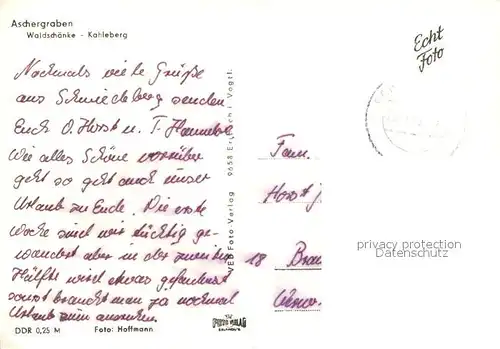 Aschergraben
Waldschänke - Kahleberg
Echt
Foto
Nochmals viele Grüße
aus Schmiedeberg senden
Euch O. Horst u. T. Hannelore
Wie alles Schöne vorrüber
geht so geht auch unser
Urlaub zu Ende. Die erste
Woche sind wir tüchtig ge-
wandert aber in der zweiten
Hälfte wird etwas gefaulenzt
sonst braucht man ja nochmal
Urlaub zum ausruhen.
DDR 0,25 M
Foto: Hoffmann
VEB Foto-Verlag 9658 Erlbach i. Vogtl.
Fam.
Horst
18
privacy protection
Datenschutz